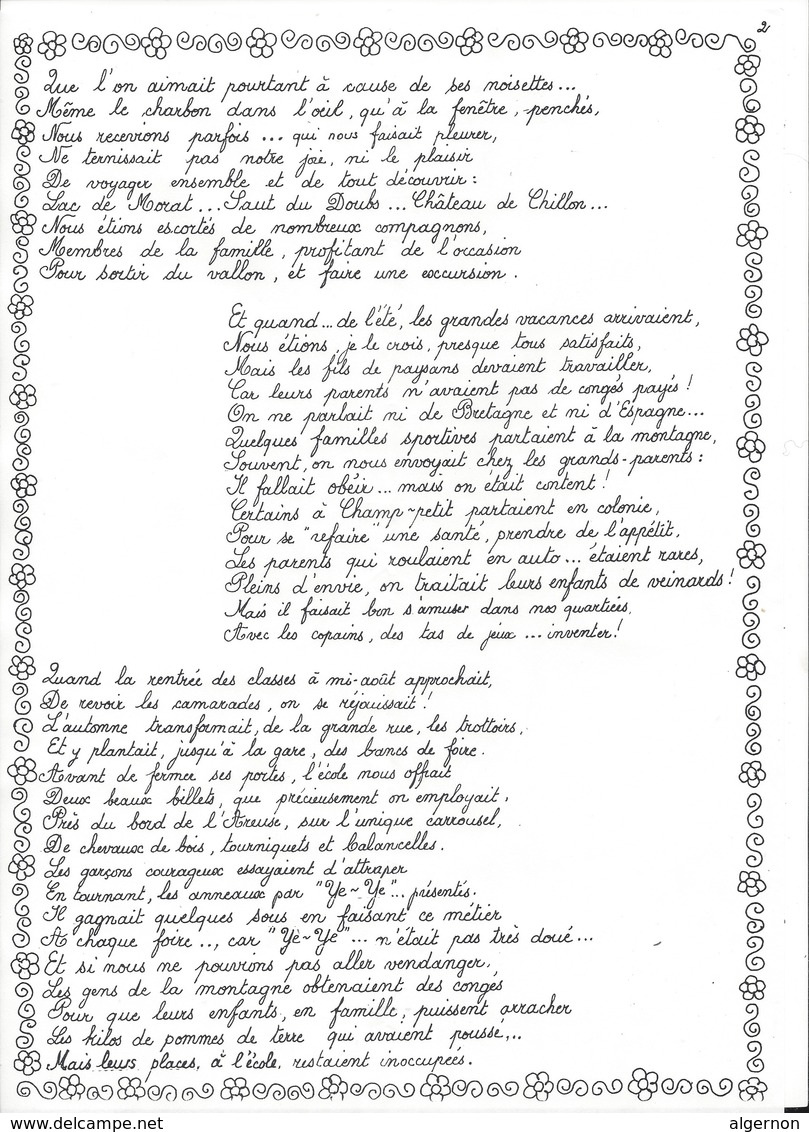 2
Que l'on aimait pourtant à cause de ses noisettes...
Même le charbon dans l'oeil, qu'à la fenêtre, penchés,
Nous recevions parfois ... qui nous faisait pleurer,
Ne ternissait pas notre joie, ni le plaisir
De voyager ensemble et de tout découvrir :
Lac de Morat... Saut du Doubs ... Château de Chillon...
Nous étions escortés de nombreux compagnons,
Membres de la famille, profitant de l'occasion
Pour sortir du vallon, et faire une excursion.
Et quand... de l'été, les grandes vacances arrivaient,
Nous étions, je le crois, presque tous satisfaits,
Mais les fils de paysans devaient travailler,
Car leurs parents n'avaient pas de congés payés !
On ne parlait ni de Bretagne et ni d'Espagne...
Quelques familles sportives partaient à la montagne,
Souvent, on nous envoyait chez les grands-parents :
Il fallait obéir ... mais on était content !
Certains à Champ-petit partaient en colonie,
Pour se "refaire" une santé, prendre de l'appétit,
Les parents qui roulaient en auto... étaient rares,
Pleins d'envie, on traitait leurs enfants de veinards !
Mais il faisait bon s'amuser dans nos quartiers,
Avec les copains, des tas de jeux ... inventer!
Quand la rentrée des classes à mi-août approchait,
De revoir les camarades, on se réjouissait !
L'automne transformait, de la grande rue, les trottoirs,
Et y plantait, jusqu'à la gare, des bancs de foire.
Avant de fermer ses portes, l'école nous offrait
Deux beaux billets, que précieusement on employait,
Près du bord de l'Areuse, sur l'unique carrousel,
De chevaux de bois, tourniquets et balancelles.
Les garçons courageux essayaient d'attraper
En tournant, les anneaux par "Yé~Yé"... présentés.
Il gagnait quelques sous en faisant ce métier
A chaque foire..., car "Yé~Yé"... n'était pas très doué...
Et si nous ne pouvions pas aller vendanger,
Les gens de la montagne obtenaient des congés
Pour que leurs enfants, en famille, puissent arracher
Les kilos de pommes de terre qui avaient poussé,..
Mais leurs places, à l'école, restaient inoccupées.
www.delcampe.net
algernon